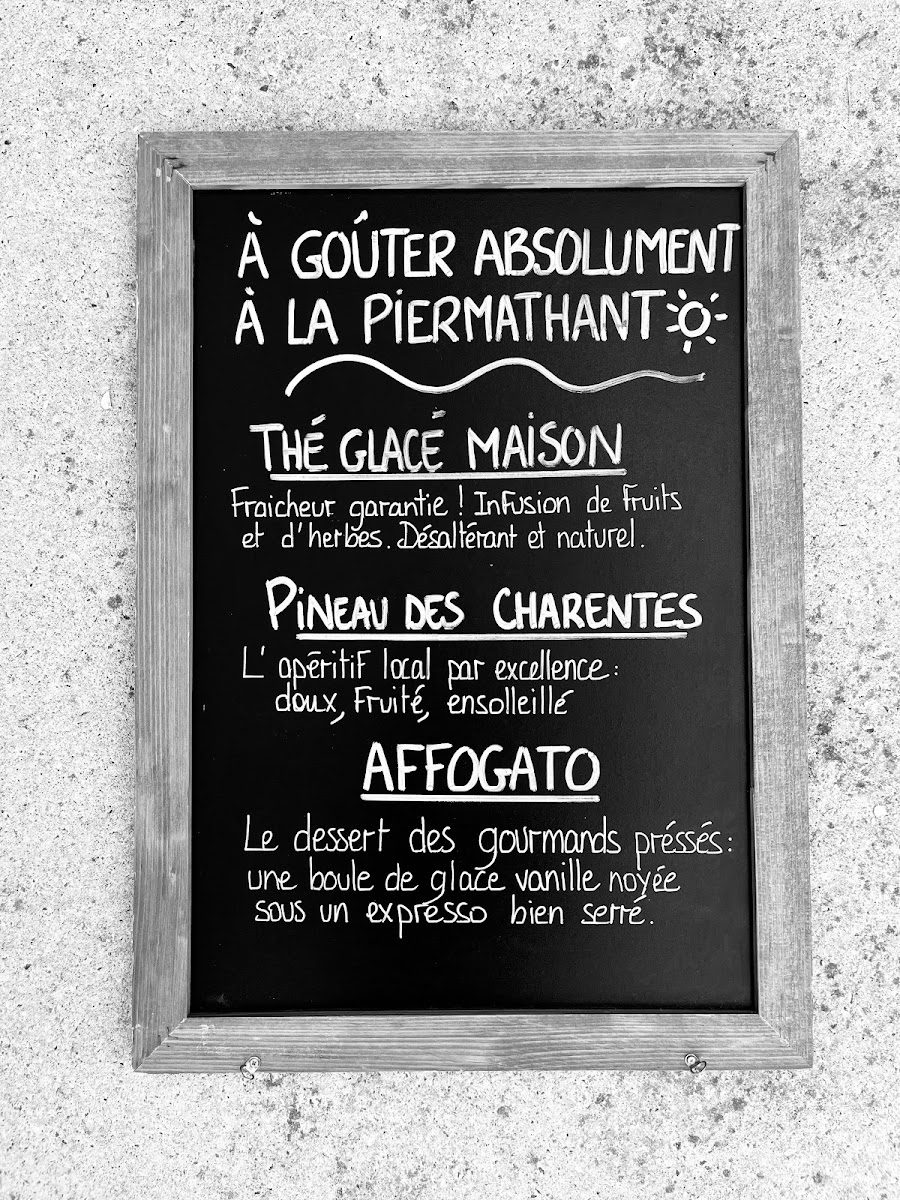 À GOÛTER ABSOLUMENT
À LA PIERMATHANT
THÉ GLACÉ MAISON
Fraicheur garantie ! Infusion de fruits
et d'herbes. Désaltérant et naturel.
PINEAU DES CHARENTES
L'apéritif local par excellence :
doux, fruité, ensolleillé
AFFOGATO
Le dessert des gourmands préssés :
une boule de glace vanille noyée
sous un expresso bien serré.